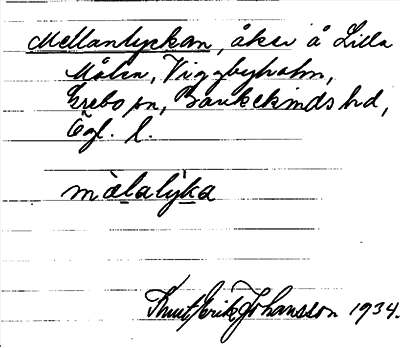 Mellanlyckan, åker å Lilla
Målen, Viggbyholm,
Grebo sn, Bankekinds hd,
Ögl. l.
màlalỳka
Knut Erik Johansson 1934.